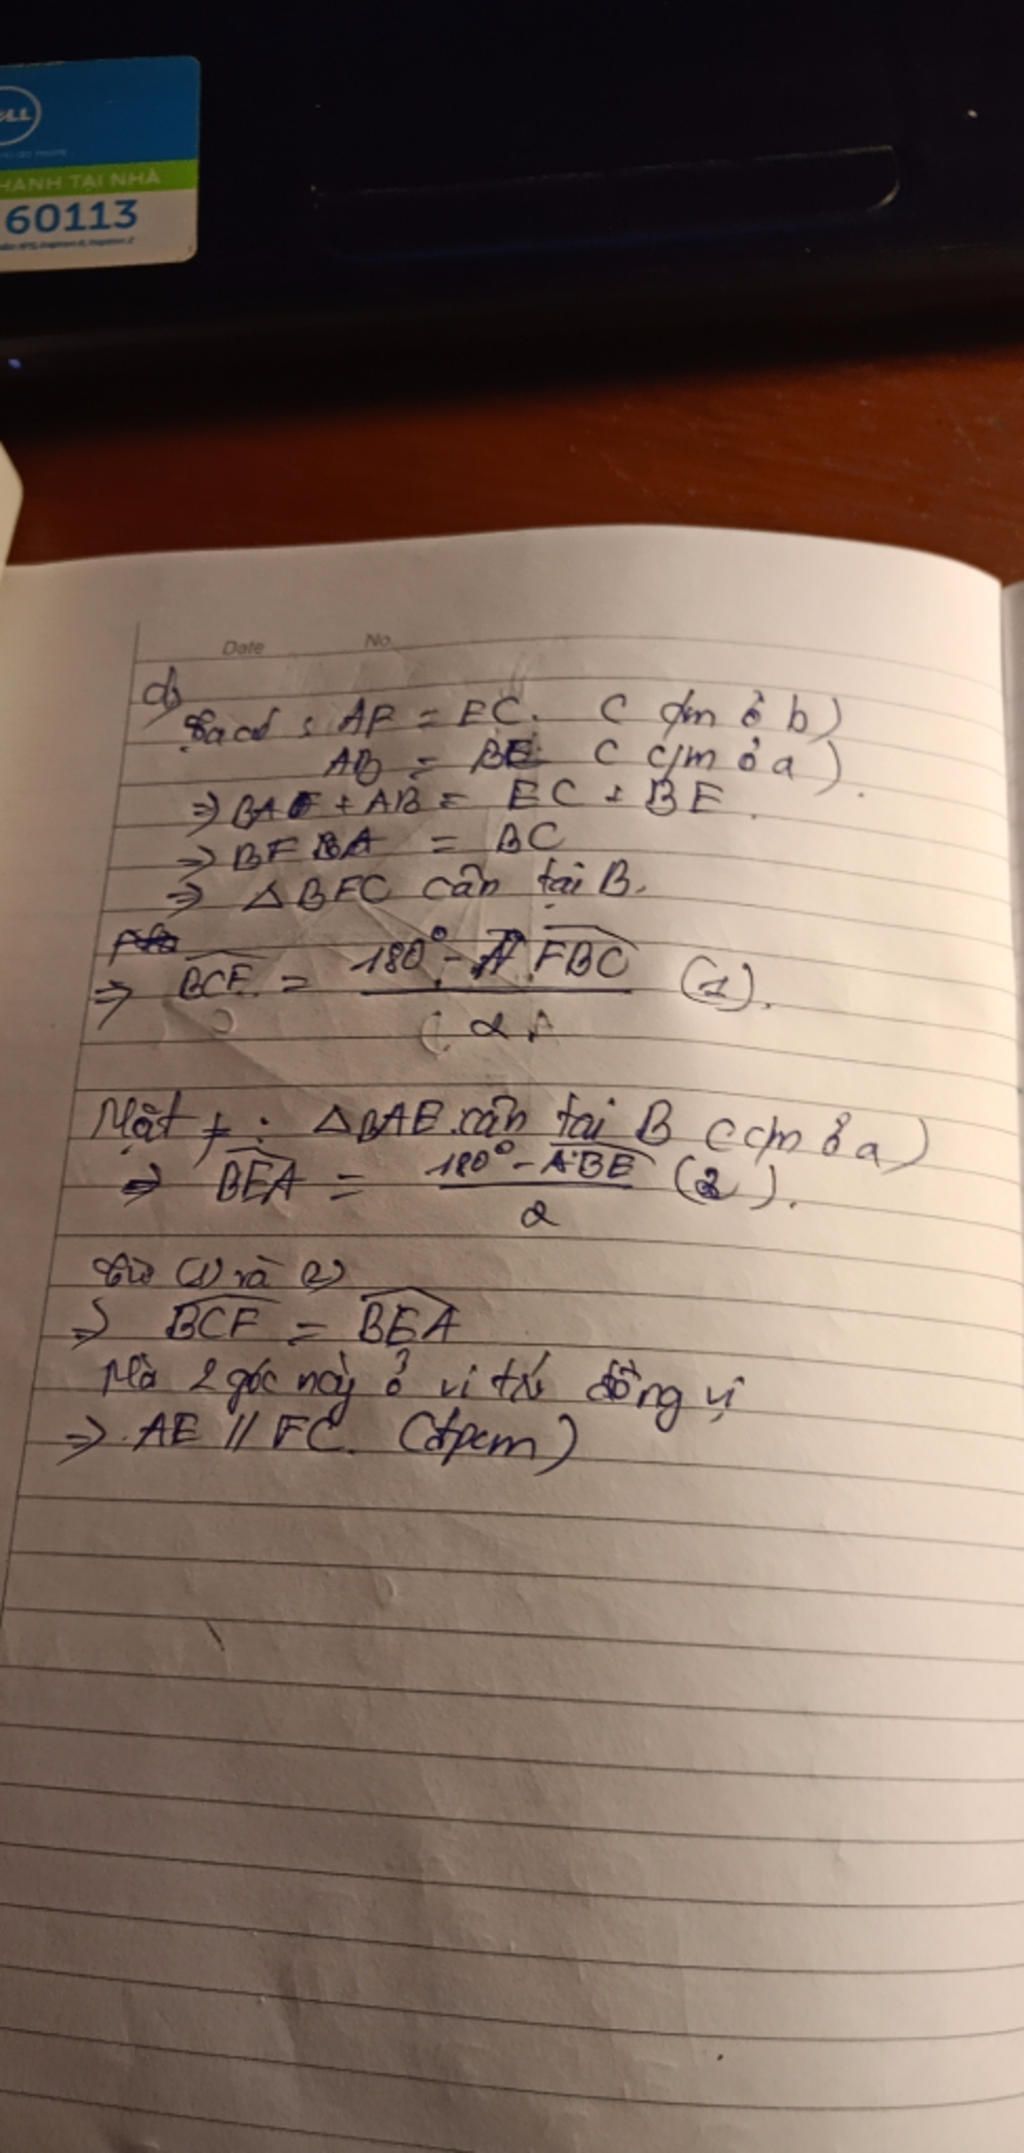 LL
HÀNH TẠI NHÀ
60113
Date No
d)
Ta có : AF = EC. ( cm ở b)
AB = BE ( cm ở a).
=> AF + AB = EC + BE.
=> BF = BC
=> △BFC cân tại B.
=> BCF = 180° - FBC (1).
2
Mặt ≠ : △BAE cân tại B (cm ở a)
=> BEA = 180° - ABE (2).
2
Từ (1) và (2)
=> BCF = BEA
Mà 2 góc này ở vị trí đồng vị
=> AE // FC. (đpcm)